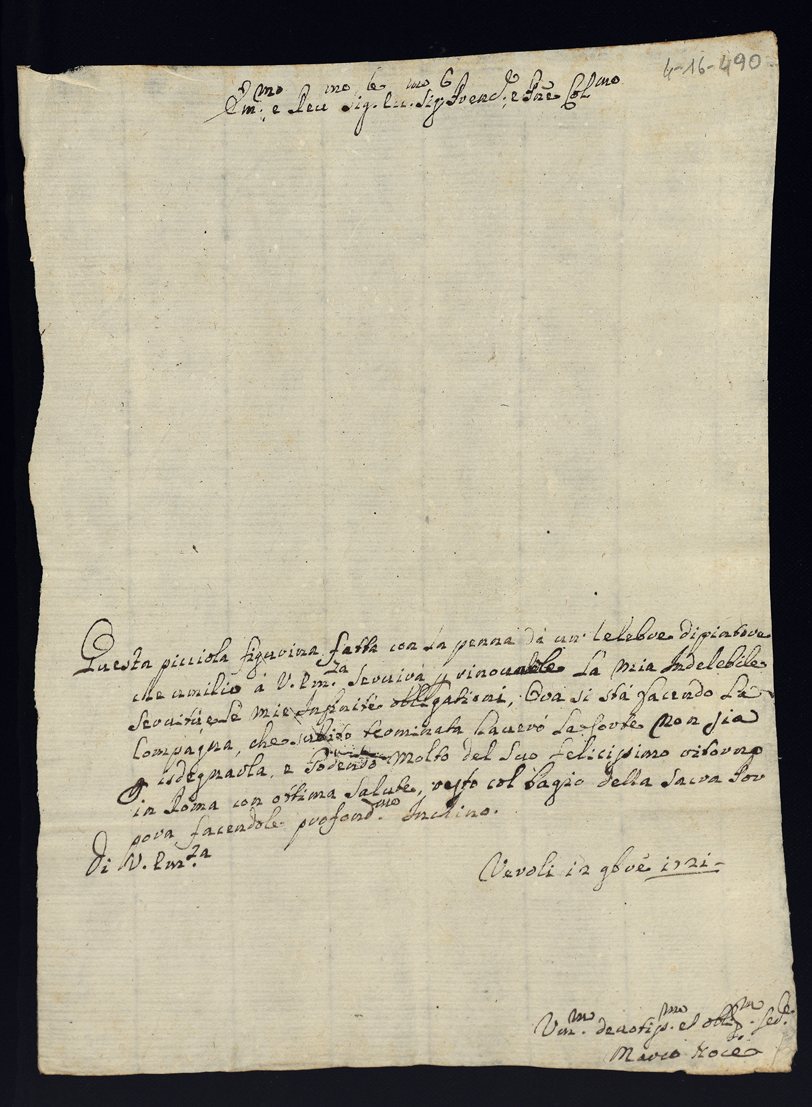 4-16-490
Em:mo e Reu:mo Sig.le Sig. e Pne Col:mo
Questa picciola figurina fatta con la penna da un' Celebre dipintore
che umilio à V. Em.za servirà p rinovarle la mia Indelebile
servitù e le mie Infinite obligationi, Ora si stà facendo la
Compagna, che subito terminata haverò la sorte non sia
p isdegnarla, e Godendo molto del suo felicissimo ritorno
in Roma con ottima salute, resto col bagio della sacra Por
pora facendole profond.mo Inchino.
Di V. Em.za
Veroli 12 9bre 1721
Um:mo devotiss:mo et obl:mo
Marco